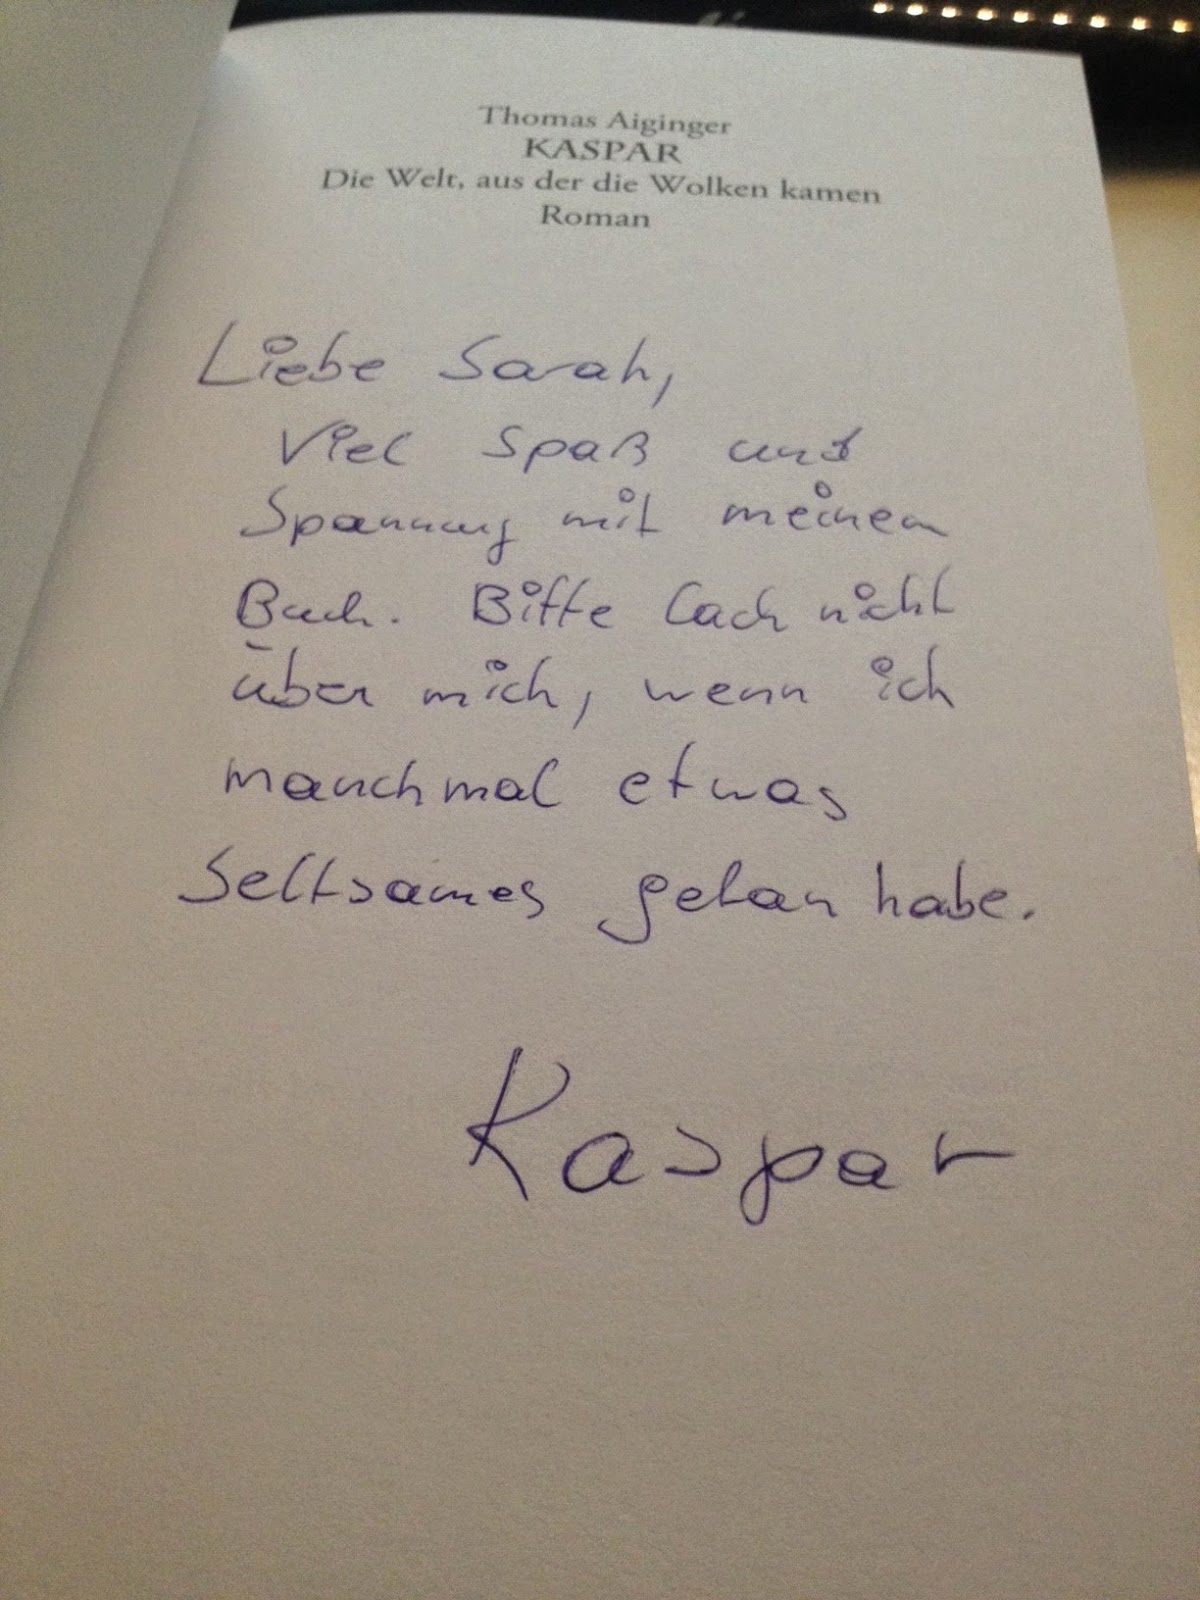 Thomas Aiginger
KASPAR
Die Welt, aus der die Wolken kamen
Roman
Liebe Sarah,
Viel Spaß und
Spannung mit meinem
Buch. Bitte lach nicht
über mich, wenn ich
manchmal etwas
Seltsames getan habe.
Kaspar